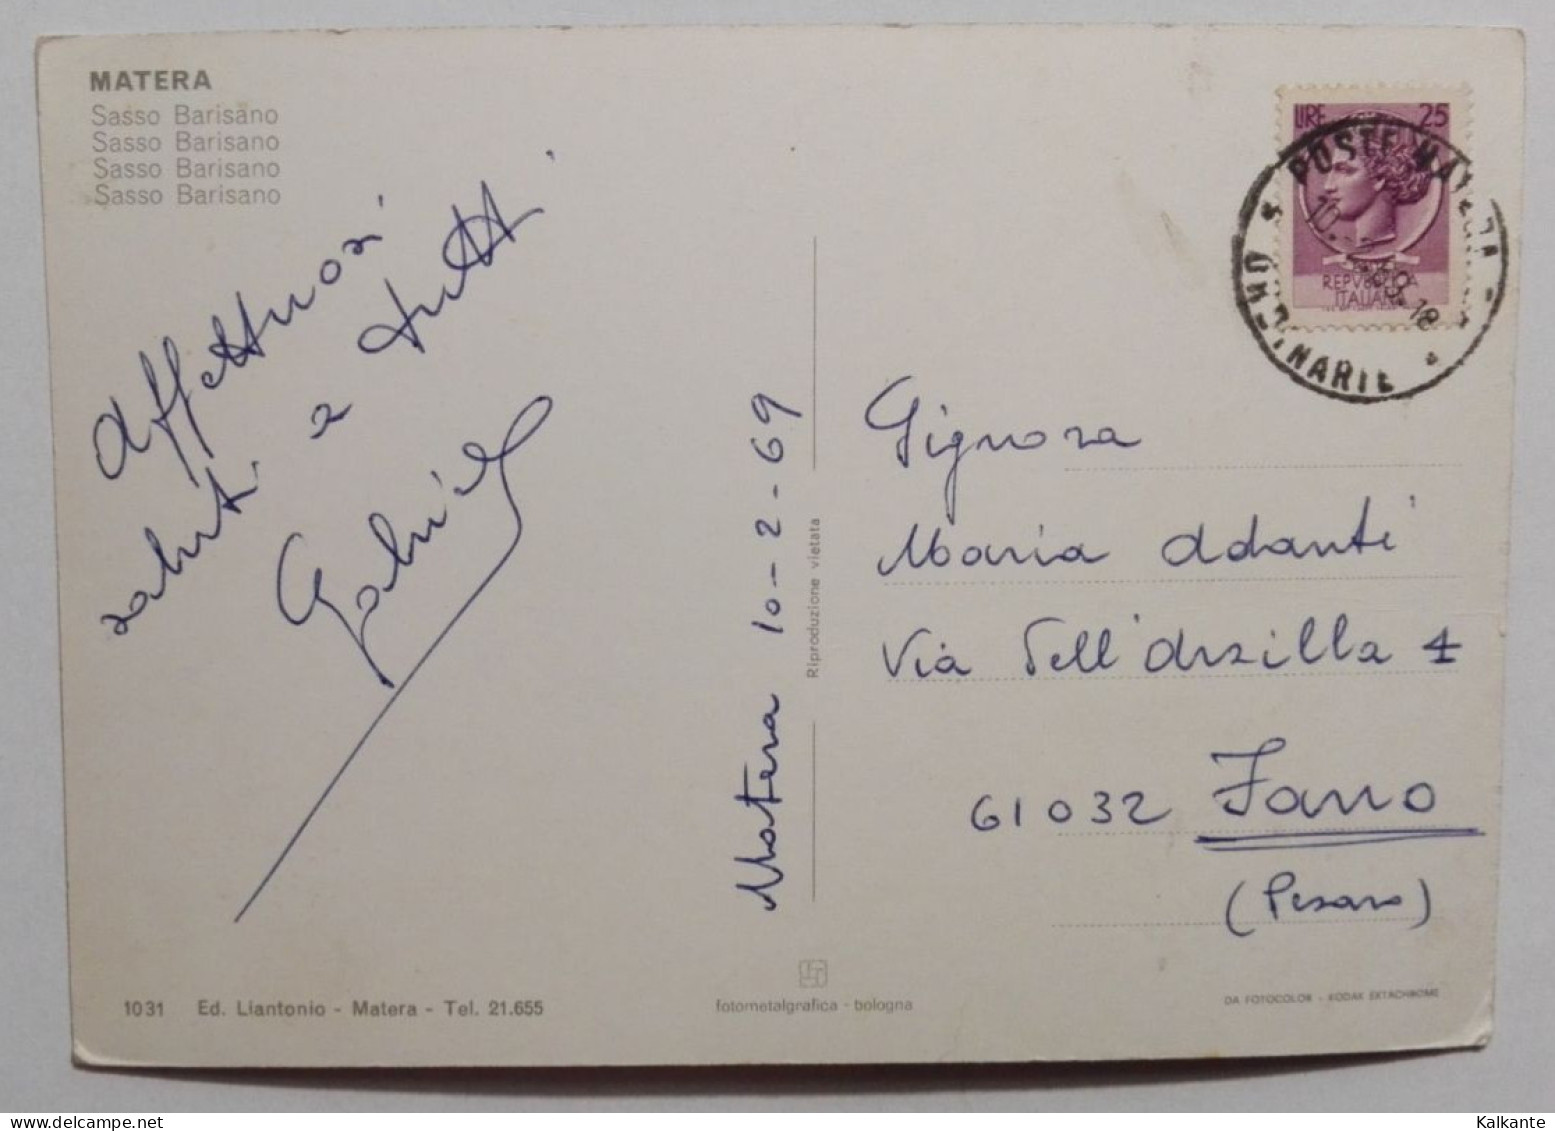 MATERA
Sasso Barisano
Sasso Barisano
Sasso Barisano
Sasso Barisano
Affettuosi
saluti a tutti
Gabriel
Matera 10-2-69
Riproduzione vietata
LIRE 25
POSTE MATERA
ORDINARIE
10.-2.69.18
REPVBBLICA
ITALIANA
Signora
Maria Adanti
Via Dell'Arzilla 1
61032 Fano
(Pesaro)
1031 Ed. Liantonio - Matera - Tel. 21.655
fotometalgrafica - bologna
DA FOTOCOLOR - KODAK EKTACHROME
Kalkante